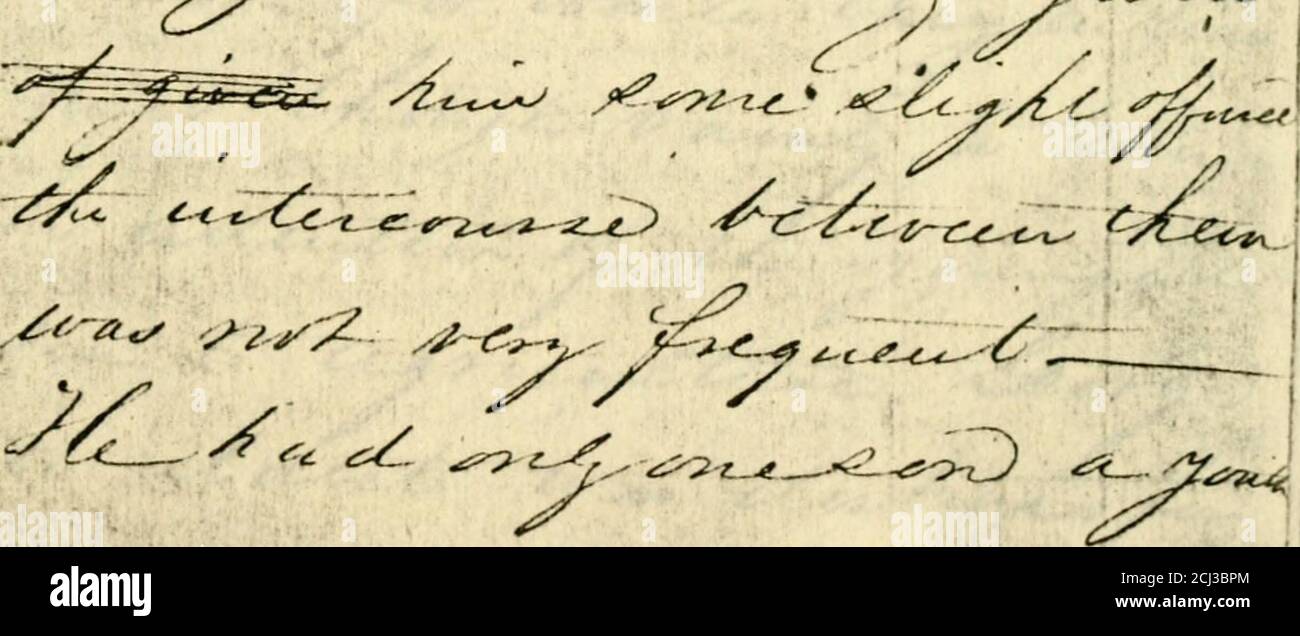 ~~of given~~ him some slight offence
the intercourse between them
was not very frequent —
He had only one son a youth
alamy
Image ID: 2CJ3BPM
www.alamy.com